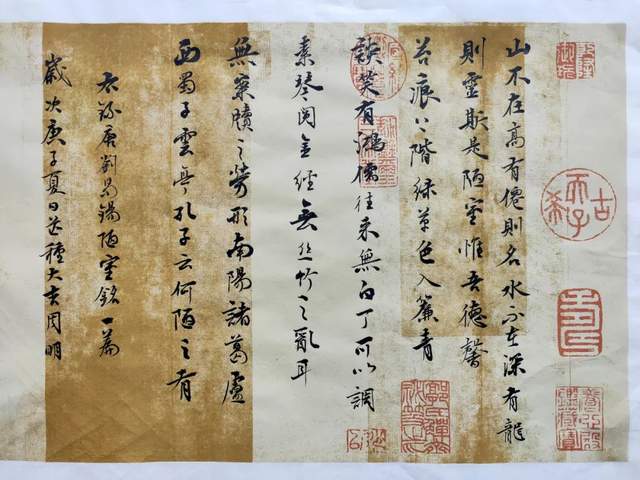 山不在高有僊則名水不在深有龍
則靈斯是陋室惟吾德馨
苔痕上階綠草色入簾青
談笑有鴻儒往來無白丁可以調
素琴閱金經無絲竹之亂耳
無案牘之勞形南陽諸葛廬
西蜀子雲亭孔子云何陋之有
右錄唐劉禹錫陋室銘一篇
歲次庚子夏日芒種大吉周明
古希天子